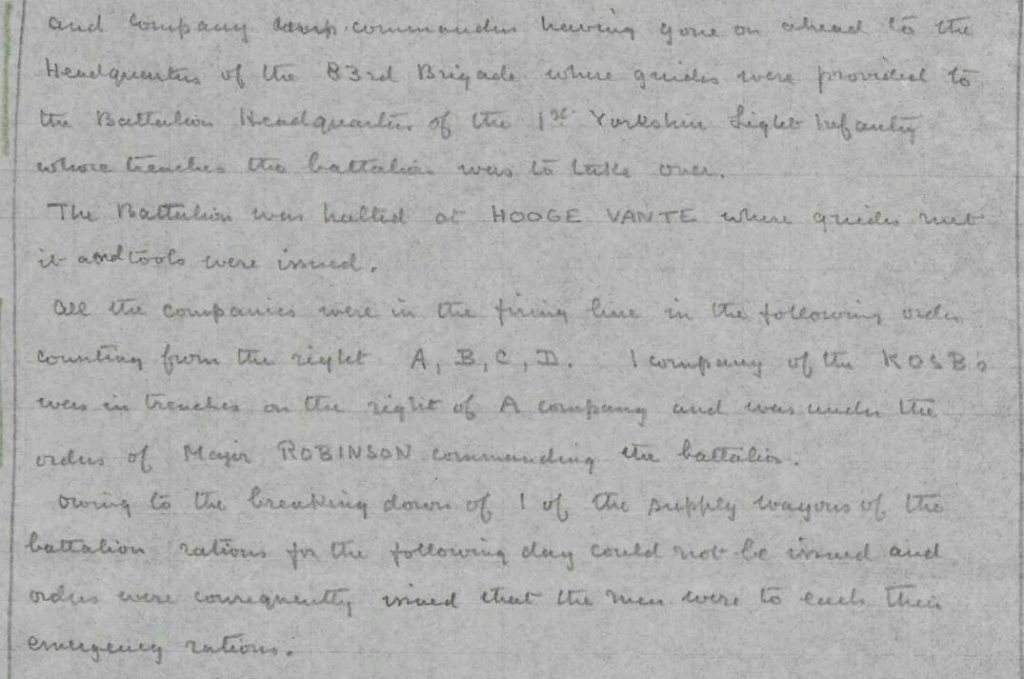 and company commanders having gone on ahead to the
Headquarters of the 83rd Brigade where guides were provided to
the Battalion Headquarters of the 1st Yorkshire Light Infantry
whose trenches the battalion was to take over.
The Battalion was halted at HOOGE VANTE where guides met
it and tools were issued.
All the companies were in the firing line in the following order
counting from the right A, B, C, D. 1 company of the KOSBs
was in trenches on the right of A company and was under the
orders of Major ROBINSON commanding the battalion.
Owing to the breaking down of 1 of the supply wagons of the
battalion rations for the following day could not be issued and
orders were consequently issued that the men were to each their
emergency rations.